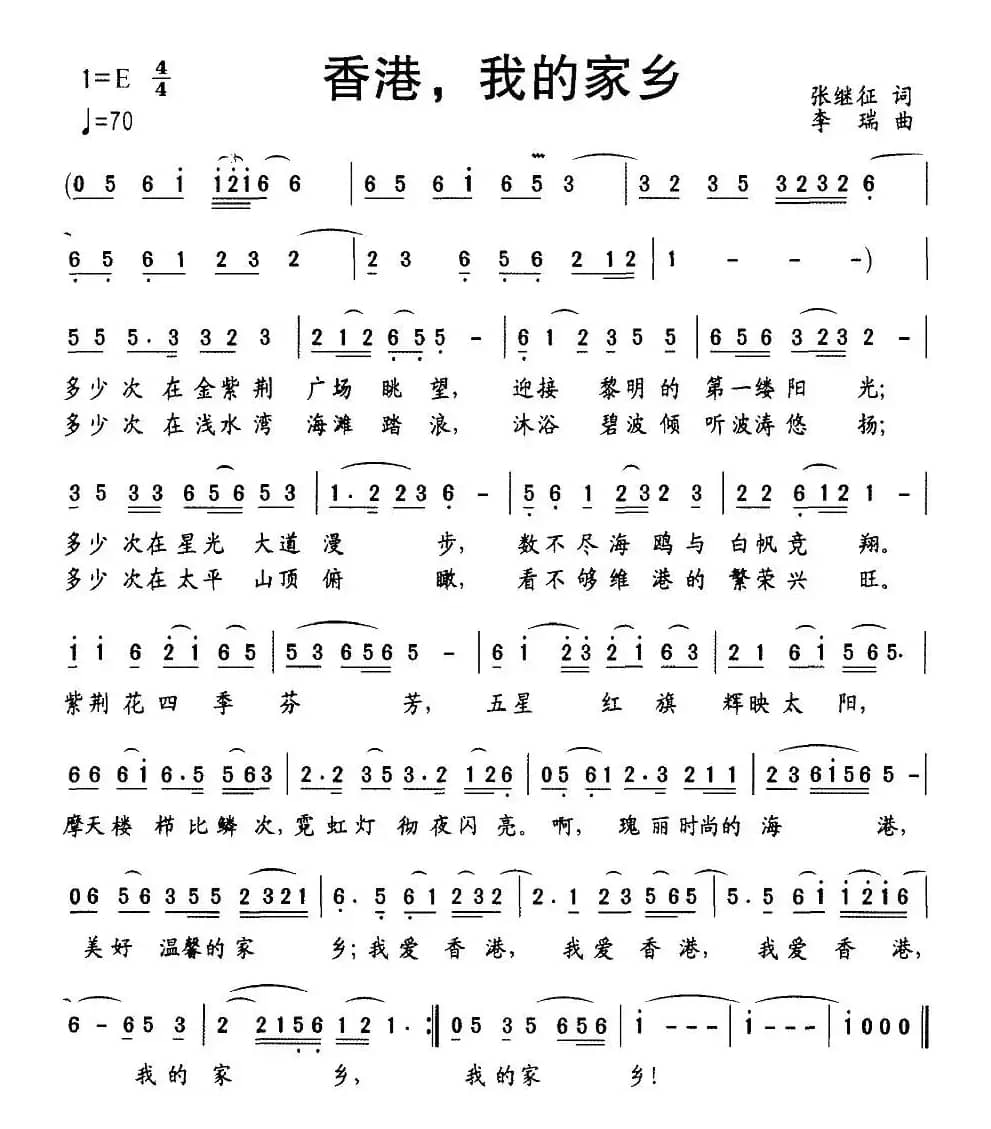 香港，我的家乡
1=E 4/4
♩=70
张继征 词
李 瑞 曲
(0 5 6 i i2i6 6 | 6 5 6 i 6 5 3 | 3 2 3 5 3232 6 |
6 5 6 1 2 3 2 | 2 3 6 5 6 2 12 | 1 - - -) |
5 5 5. 3 3 3 2 3 | 2 1 2 6 5 5 - | 6 1 2 3 5 5 | 6 5 6 3 2 3 2 - |
多少次 在金紫荆 广场 眺望， 迎接 黎明的 第一缕阳 光；
多少次 在浅水湾 海滩 踏浪， 沐浴 碧波倾 听波涛悠 扬；
3 5 3 3 6 5 6 5 3 | 1. 2 2 2 3 6 - | 5 6 1 2 3 2 3 | 2 2 6 1 2 1 - |
多少次在星光 大道漫 步， 数不尽海鸥与 白帆竞 翔。
多少次在太平 山顶俯 瞰， 看不够维港的 繁荣兴 旺。
i i 6 2 i 6 5 | 5 3 6 5 6 5 - | 6 i 2 3 2 i 6 3 | 2 1 6 i 5 6 5. |
紫荆花四 季 芬 芳， 五星 红旗 辉映太阳，
6 6 6 i 6. 5 5 6 3 | 2. 2 3 5 3. 2 1 2 6 | 0 5 6 1 2. 3 2 1 1 | 2 3 6 i 5 6 5 - |
摩天楼 栉比鳞次，霓虹灯 彻夜闪亮。啊， 瑰丽时尚的海 港，
0 6 5 6 3 5 5 2 3 2 1 | 6. 5 6 1 2 3 2 | 2. 1 2 3 5 6 5 | 5. 5 6 i i 2 i 6 |
美好 温馨的家 乡；我爱香港， 我爱香港， 我爱香港，
6 - 6 5 3 | 2 2 1 5 6 1 2 1. :‖ 0 5 3 5 6 5 6 | i - - - | i - - - | i 0 0 0 ‖
我的家 乡， 我的家 乡！